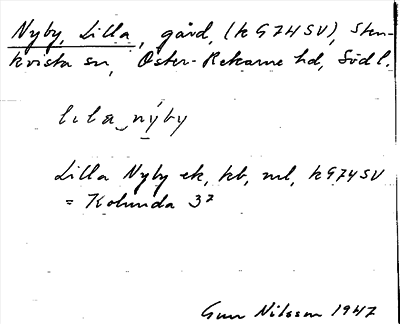 Nyby, Lilla, gård, (k G74SV), Sten-
kvista sn, Öster-Rekarne hd, Södl.
lila nýby
Lilla Nyby ek, kb, ml, kG74SV
= Kolunda 3²
Gun Nilsson 1947